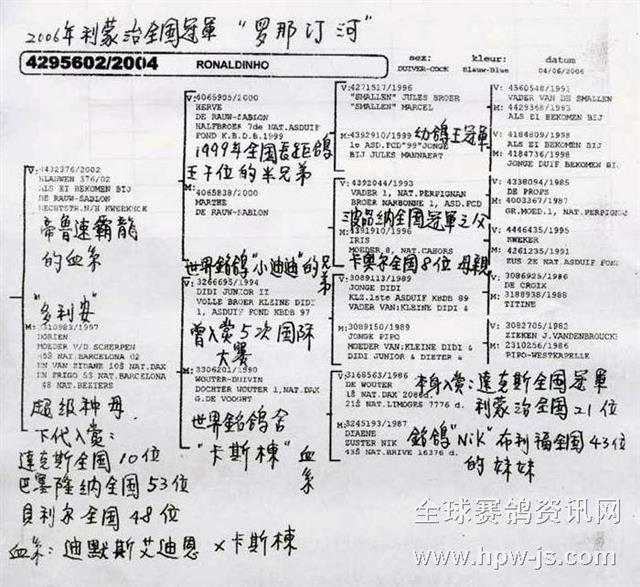 2006年利蒙治全国冠軍“罗那汀河”
4295602/2004 RONALDINHO
sex: DUIVER-COCK
kleur: Blauw-Blue
datum 04/06/2006
V:4432376/2002
BLAUWEN 376/02
ALS EI BEKOMEN BIJ
DE RAUW-SABLON
帝魯連霸龍
的血系
“多利安”
M:3310983/1997
DORIEN
MOEDER V/D SCHERPEN
45§ NAT.BARCELONA 02
EN VAN ZIDANE 10§ NAT.DAX
EN FRIGO 53 NAT.BARCELONA
48 NAT.BEZIERS
超级种母
下代入賞:
達克斯全国10位
巴塞隆纳全国53位
貝利尔全国48位
血系: 迪默斯艾迪恩 x 卡斯棟
V:4065905/2000
HERVE
DE RAUW-SABLON
HALFBROER 7de NAT.ASDUIF
FOND K.B.D.B.1999
1999年全国長距鴿
王子位的半兄弟
M:4065838/2000
MARTHE
DE RAUW-SABLON
世界銘鴿“小迪迪”的兄弟
V:3266695/1994
DIDI JUNIOR II
VOLLE BROER KLEINE DIDI
1, ASDUIF FOND KBDB 97
曾入赏5次国际
大赛
M:3306201/1990
WOUTER-DUIVIN
DOCHTER WOUTER 1,NAT.DAX
G.DE VOOGHT
世界銘鴿舍
“卡斯棟”血系
V:4271517/1996
"SMALLEN" JULES BROER
"SMALLEN" MARCEL
M:4392910/1999
1e ASD.FCD"99"JONGE
BIJ JULES MANNAERT
幼鴿王冠軍
V:4392044/1993
VADER 1, NAT.PERPIGNAN
BROER NARBONNE 1, ASD.FCD
波品纳全国冠軍之父
M:4391910/1996
IRIS
MOEDER,8, NAT.CAHORS
卡奥尔全国8位 母親
V:3089113/1989
JONGE DIDI
KLZ.1ste ASDUIF KBDB 89
VADER VAN:KLEINE DIDI &
M:3089150/1989
JONGE PIPO
MOEDER VAN:KLEINE DIDI &
DIDI JUNIOR & DIETER &
V:3168563/1986
DE WOUTER
1§ NAT.DAX 2086d.
21§ NAT.LIMOGES 7776 d.
本身入赏: 達克斯全国冠軍
利蒙治全国21位
M:3245193/1987
DIAENE
SUSTER NIK
43§ NAT.BRIVE 16376 d.
銘鴿“NiK”布利福全国43位
的妹妹
V: 4360548/1991
VADER VAN DE SMALLEN
M: 4429368/1993
ALS EI BEKOMEN BIJ
V: 4184809/1998
ALS EI BEKOMEN BIJ
M: 4184736/1998
JONGE DUIF BEKOMEN BIJ
V: 4338094/1985
DE PROPS
M: 4003367/1987
GR.MOED.1, NAT.PERPIGNAN
V: 4446435/1995
KWEKER
M: 4261235/1991
ZUS 2E NAT.ASDUIF FOND
V: 3086925/1986
DE CROIX
M: 3188938/1987
TITINE
V: 3082705/1982
ZIEKEN J.VANDENBROUCKE
M: 2310256/1986
PIPO-WESTKAPELLE
全球赛鸽资讯网
www.hpw-js.com